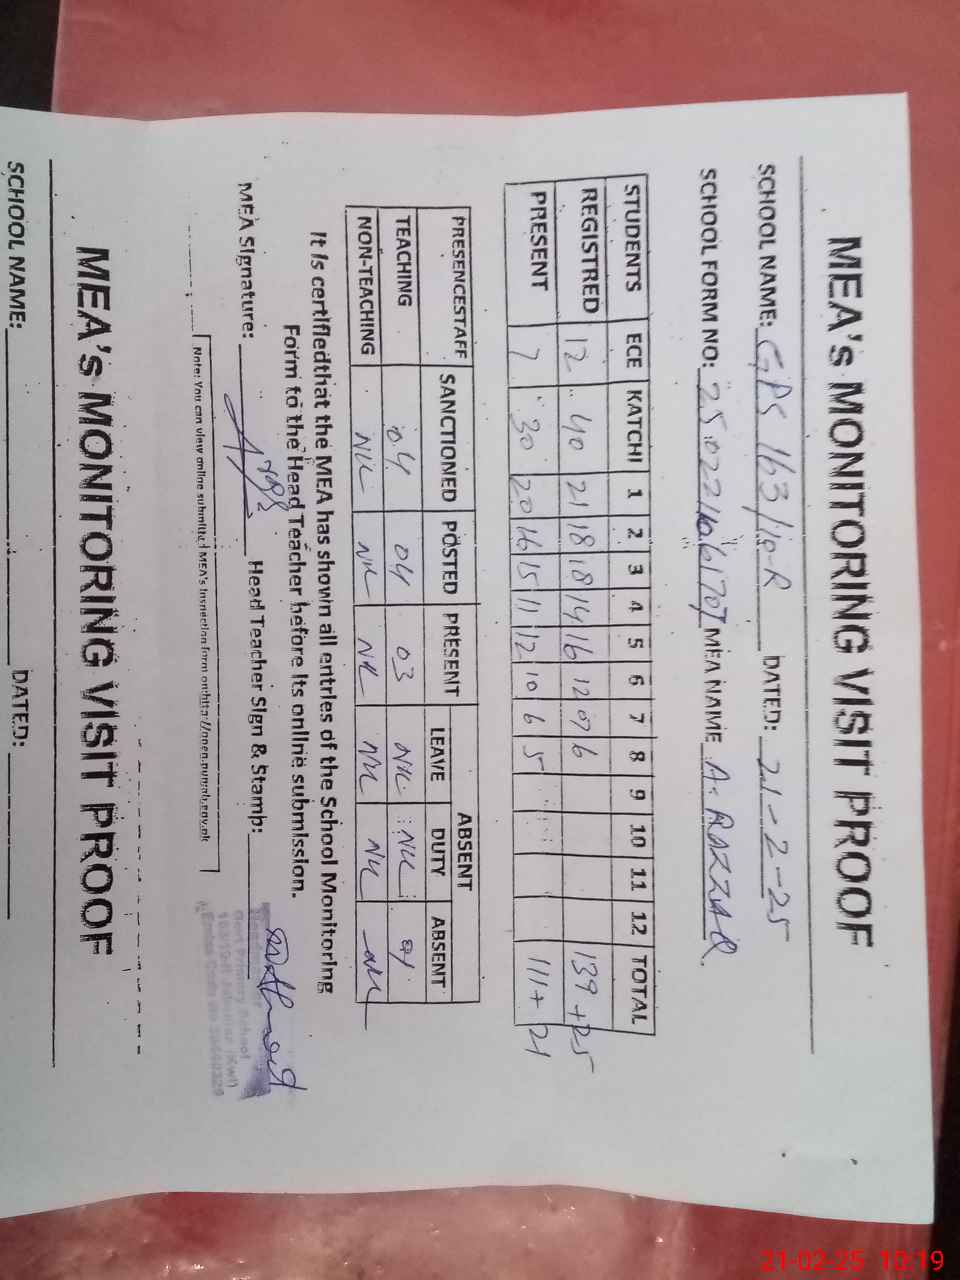 MEA's MONITORING VISIT PROOF
SCHOOL NAME: GPS 163/10-R DATED: 21-2-25
SCHOOL FORM NO: MEA NAME A. RAZZAQ
STUDENTS ECE KATCHI 1 2 3 4 5 6 7 8 9 10 11 12 TOTAL
REGISTRED 12 40 21 18 18 14 16 12 07 6 139+25
PRESENT 7 30 20 16 15 11 12 10 6 5 111+21
ABSENT
PRESENCESTAFF SANCTIONED POSTED PRESENT LEAVE DUTY ABSENT
TEACHING 04 04 03 NIL NIL 01
NON-TEACHING NIL NIL NIL NIL NIL NIL
It is certifiedthat the MEA has shown all entries of the School Monitoring
Form to the Head Teacher before its online submission.
MEA Signature: Head Teacher Sign & Stamp:
Govt Primary School
Note: You can view online submitted MEA's Inspection form on:http://open.punjab.gov.pk
MEA's MONITORING VISIT PROOF
SCHOOL NAME: DATED:
21-02-25 10:19